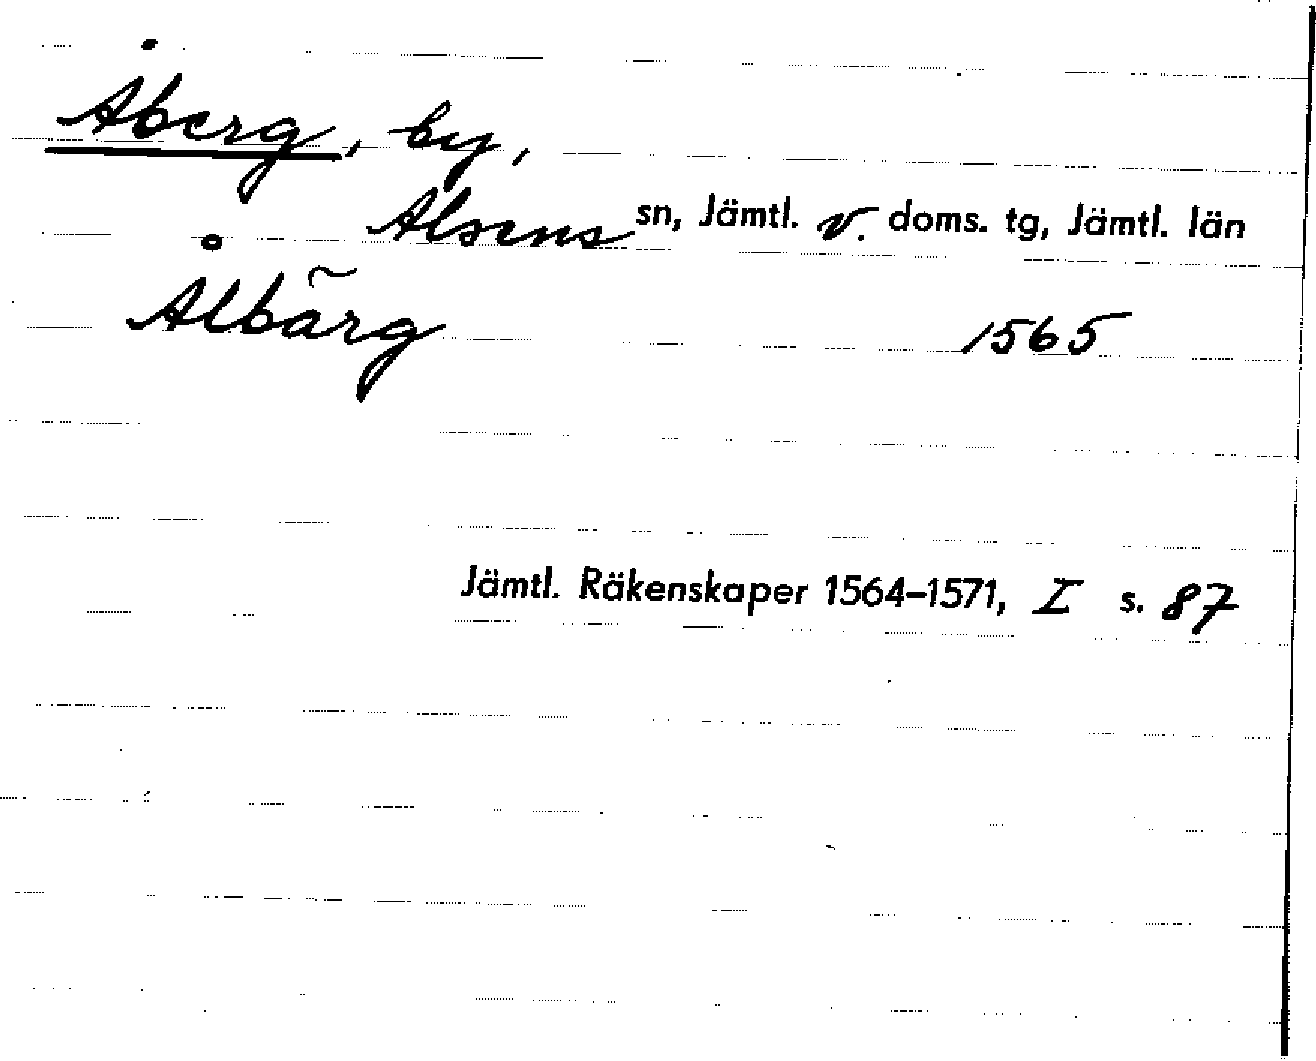 Åberg, by,
Alsens sn, Jämtl. v. doms. tg, Jämtl. län
Ålbãrg 1565
Jämtl. Räkenskaper 1564–1571, I s. 87